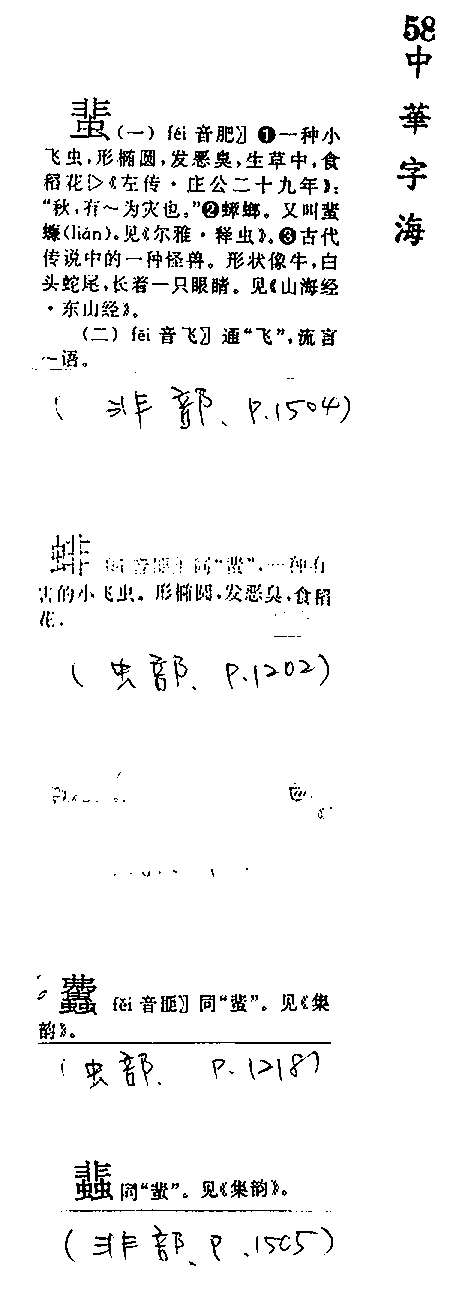 58
中華字海
蜚(一) féi 音肥〗❶一种小
飞虫,形椭圆,发恶臭,生草中,食
稻花▷《左传·庄公二十九年》:
“秋,有～为灾也。”❷蟑螂。又叫蜚
蠊(lián)。见《尔雅·释虫》。❸古代
传说中的一种怪兽。形状像牛,白
头蛇尾,长着一只眼睛。见《山海经
·东山经》。
(二) fēi 音飞〗通“飞”,流言
～语。
( 非部、P.1504)
蜚 同“蜚”,一种有
害的小飞虫。形椭圆,发恶臭,食稻
花.
(虫部、P.1202)
fěi 音匪〗同“蜚”。见《集
韵》。
(虫部、P.1218)
同“蜚”。见《集韵》。
(非部、P.1505)